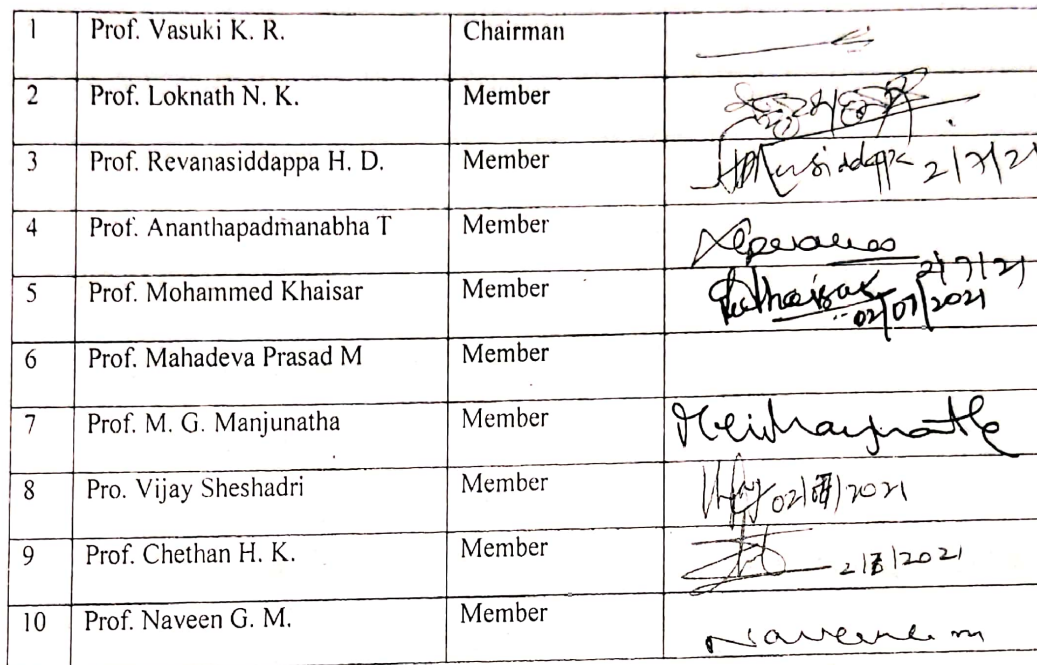 1 Prof. Vasuki K. R. Chairman
2 Prof. Loknath N. K. Member
3 Prof. Revanasiddappa H. D. Member 2/7/21
4 Prof. Ananthapadmanabha T Member
2/7/21
5 Prof. Mohammed Khaisar Member 02/07/2021
6 Prof. Mahadeva Prasad M Member
7 Prof. M. G. Manjunatha Member
8 Pro. Vijay Sheshadri Member
9 Prof. Chethan H. K. Member
10 Prof. Naveen G. M. Member